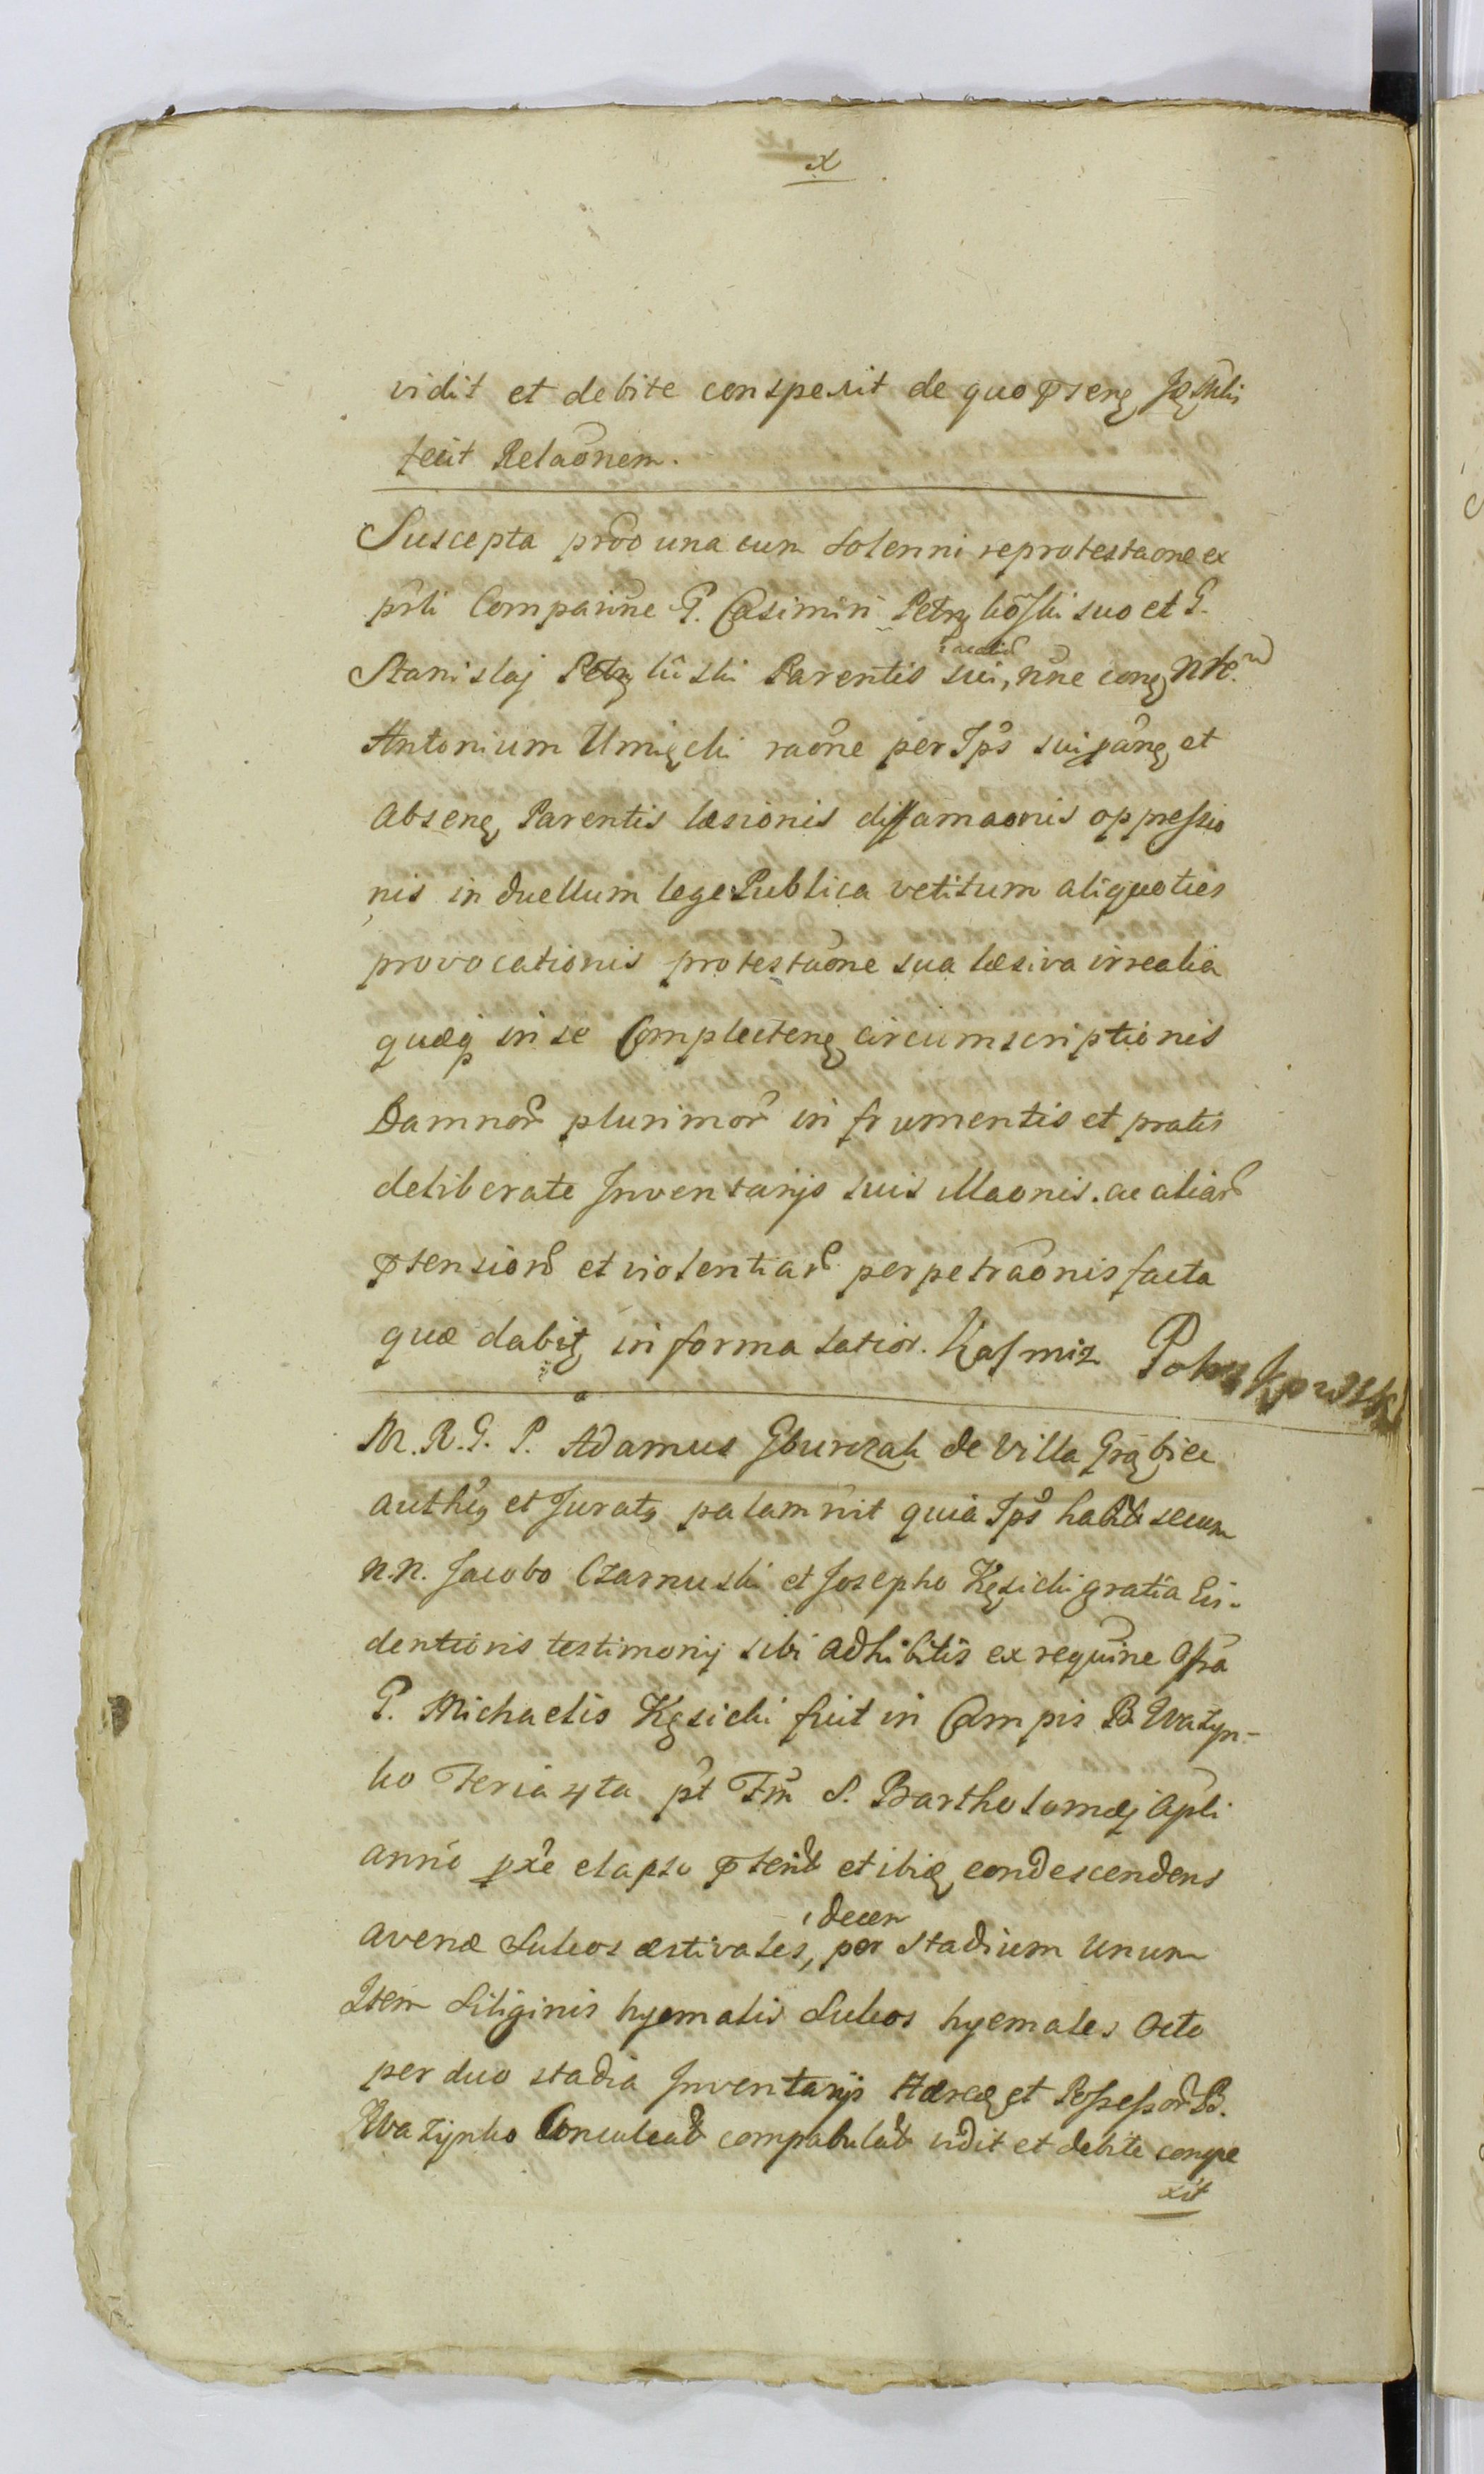 x
vidit et debite conspexit de quo pseng
fecit Relaonem.
Suscepta prõo una cum solenni reprotestaone ex
prli Comparine G. Casimiri Petrykoski suo et G.
Stanislaj Petrykũski Parentis sui, nne cong N
Antonium Umięcki raone per Ips sui pang et
abseng Parentis læsionis diffamaonis oppressio
nis in duellum lege Publica vetitum aliquoties
provocationis protestaone sua læsiva irrealia
quæq in se Complecteng circumscriptionis
Damnor plurimor in frumentis et pratis
deliberate Inventarijs suis illaonis. ac aliar
ptension et violentiar perpetraonis facta
quæ dabit in forma latior. Kasmirz Petrykowski
M. R. G. P. Adamus Gburczak de Villa Grąbice
authen et Jurat palam rnit quia Ips habit secum
N.N. Jacobo Czarnuski et Josepho Kęsicki gratia Evi-
dentioris testimonij sibi adhibitis ex requine
G. Michaelis Kęsicki fuit in Campis B. Watyn-
ko Feria 4ta pt Fm S. Bartholomæj Apli
anno pxe elapso pterit et ibiq condescendens
decem
avenæ Sulcos æstivales, per stadium unum
Item Siliginis hyemalis Sulcos hyemales Octo
per duo stadia Inventarijs Hæred et Possessor B.
Watynko Conculcat compabulat vidit et debite conspe
xit